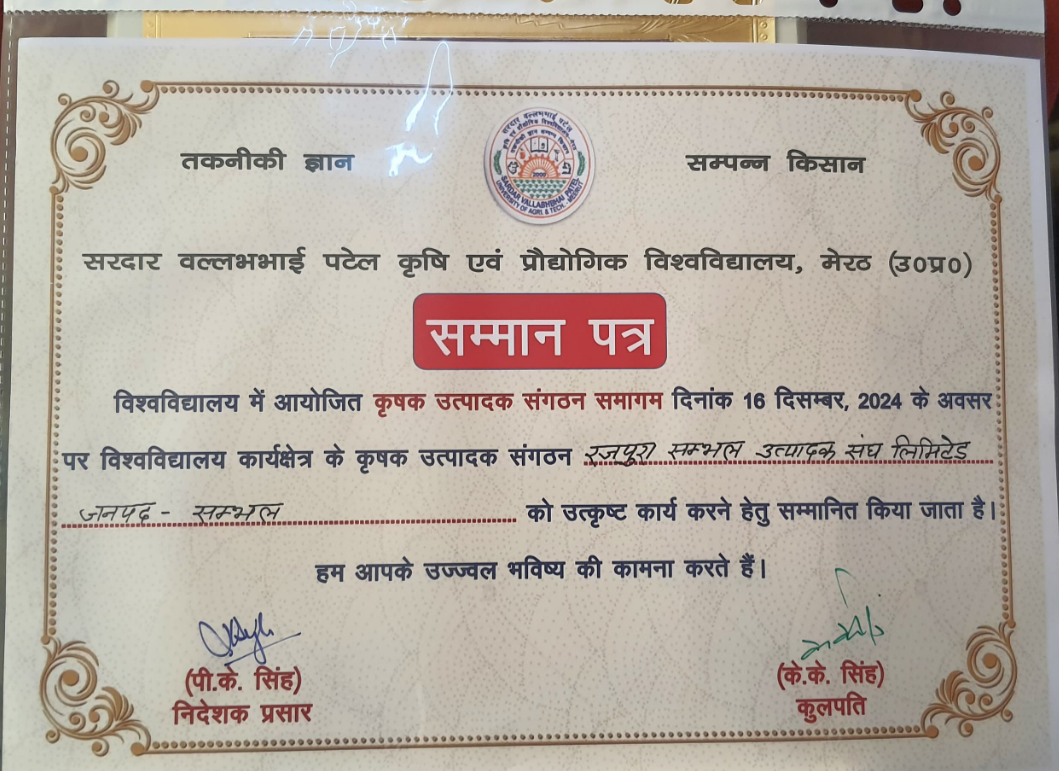 तकनीकी ज्ञान
सम्पन्न किसान
SARDAR VALLABHBHAI PATEL
UNIVERSITY OF AGRI. & TECH. MEERUT
सरदार वल्लभभाई पटेल कृषि एवं प्रौद्योगिक विश्वविद्यालय, मेरठ (उ०प्र०)
सम्मान पत्र
विश्वविद्यालय में आयोजित कृषक उत्पादक संगठन समागम दिनांक 16 दिसम्बर, 2024 के अवसर
पर विश्वविद्यालय कार्यक्षेत्र के कृषक उत्पादक संगठन रजपुरा सम्भल उत्पादक संघ लिमिटेड
जनपद - सम्भल को उत्कृष्ट कार्य करने हेतु सम्मानित किया जाता है।
हम आपके उज्ज्वल भविष्य की कामना करते हैं।
(पी.के. सिंह)
निदेशक प्रसार
(के.के. सिंह)
कुलपति